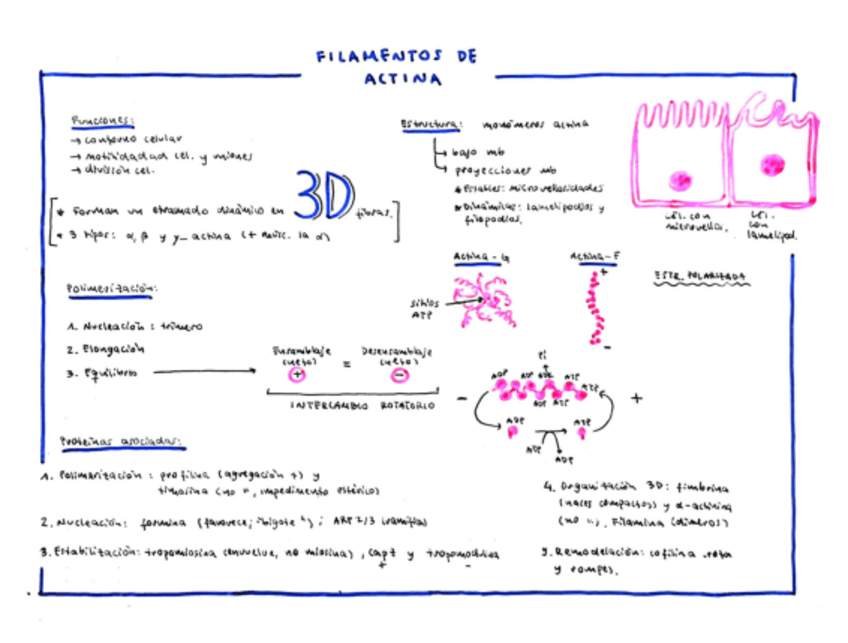 FILAMENTOS DE
ACTINA
Funciones:
→ contorno celular
→ motilidadad cel. y uniones
→ división cel.
* Forman un entramado dinámico en 3D fibras.
* 3 tipos: α, β y γ_ actina (+ músc. la α)
Estructura: monómeros actina
bajo mb
proyecciones mb
* Estables: microvellosidades
* Dinámicas: lamelipodios y
filopodios.
cél. con
microvelli.
cél.
con
lamelipod.
Polimerización:
1. Nucleación: trímero
2. Elongación
3. Equilibrio
Ensamblaje
(neto)
+
=
Desensamblaje
(neto)
-
INTERCAMBIO ROTATORIO
Actina-G
sitios
ATP
Actina-F
+
-
ESTR. POLARIZADA
Pi
ADP ADP ADP ATP ATP
ADP ATP
-
+
ADP
ATP
ATP
ADP
Proteínas asociadas:
1. Polimerización: profilina (agregación +) y
timosina (no ", impedimento estérico)
2. Nucleación: formina (favorece, "bigote"); ARP 2/3 (ramifica)
3. Estabilización: tropomiosina (envuelve, no miosina), CapZ y tropomodulina
+
-
4. Organización 3D: fimbrina
(haces compactos) y α-actinina
(no "). Filamina (dímeros)
5. Remodelación: cofilina rota
y rompes.